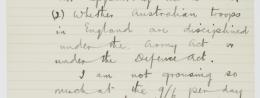 (2) Whether Australian troops
in England are disciplined
under the Army Act or
under the Defence Act.
I am not grousing so
much at the 9/6 per day